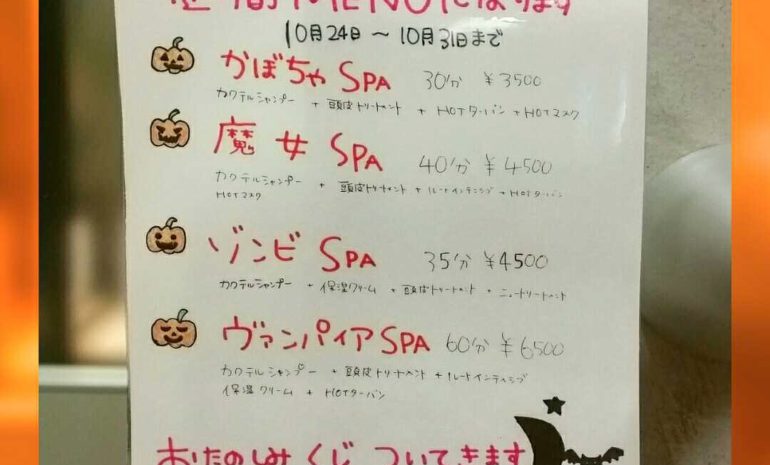 週間MENUになります
10月24日 〜 10月31日まで
かぼちゃ SPA 30分 ¥3500
カクテルシャンプー + 頭皮トリートメント + HOTターバン + HOTマスク
魔女 SPA 40分 ¥4500
カクテルシャンプー + 頭皮トリートメント + ルートインテンシブ + HOTターバン
HOTマスク
ゾンビ SPA 35分 ¥4500
カクテルシャンプー + 保湿クリーム + 頭皮トリートメント + ニュートリートメント
ヴァンパイア SPA 60分 ¥6500
カクテルシャンプー + 頭皮トリートメント + ルートインテンシブ
保湿クリーム + HOTターバン
おたのしみくじ ついてきます